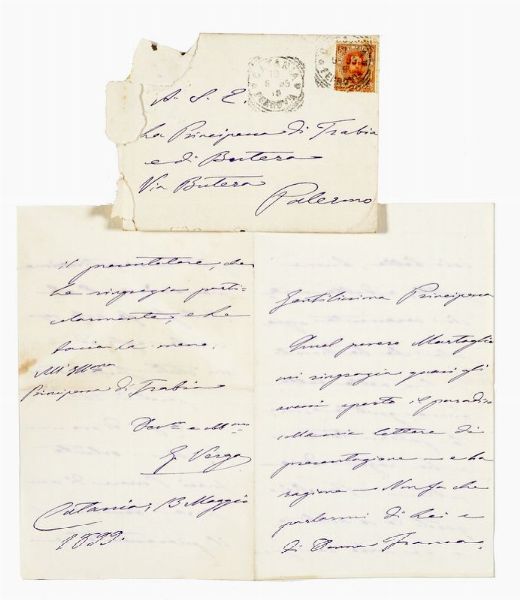 A S. E.
La Principessa di Trabia
e di Butera
Via Butera
Palermo
CATANIA
FERROVIA
il presentatore, che
La ringrazia parti-
colarmente, e che
bacia la mano.
All' Ill.ma
Principessa di Trabia
Dev.mo
G. Verga
Catania, 13 Maggio
1899.
Gentilissima Principessa
Quel povero Martoglio
mi ringrazia quasi gli
avessi aperto il paradiso
colla mia lettera di
presentazione — e ha
ragione — Non fa che
parlarmi di Lei e
di Donna Franca.